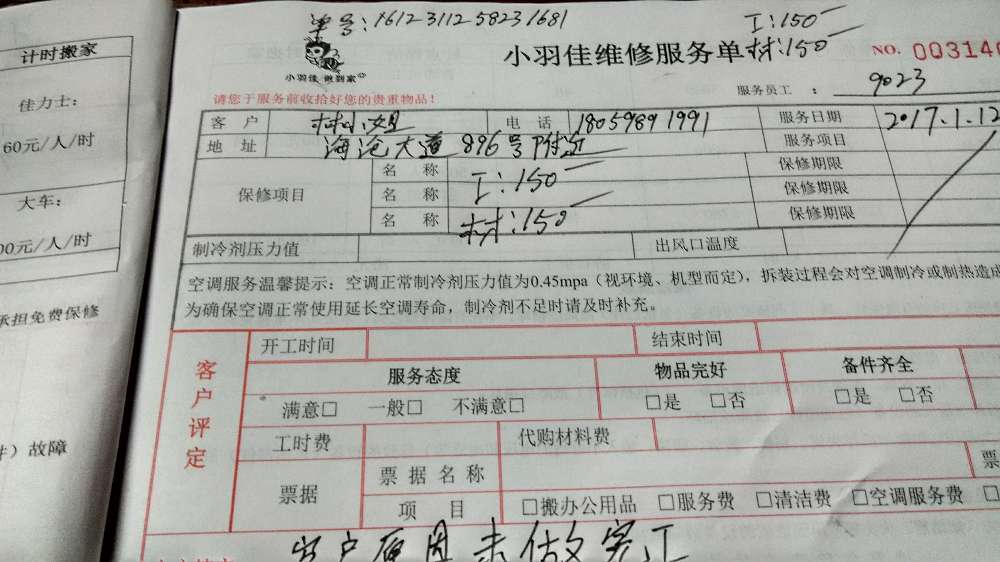 单号:1612311258231681
工:150
材:150
小羽佳 做到家
小羽佳维修服务单
NO. 003140
请您于服务前收拾好您的贵重物品!
服务员工 : 9023
客 户 林小姐 电 话 18059891991 服务日期 2017.1.12
地 址 海沧大道 896号附近 服务项目
保修项目
名 称 工:150 保修期限
名 称 保修期限
名 称 材:150 保修期限
制冷剂压力值 出风口温度
空调服务温馨提示:空调正常制冷剂压力值为0.45mpa(视环境、机型而定),拆装过程会对空调制冷或制热造成
为确保空调正常使用延长空调寿命,制冷剂不足时请及时补充。
客户评定
开工时间 结束时间
服务态度 物品完好 备件齐全
满意□ 一般□ 不满意□ □是 □否 □是 □否
工时费 代购材料费
票据
票 据 名 称 票
项 目 □搬办公用品 □服务费 □清洁费 □空调服务费 □
客户原因未做完工
计时搬家
佳力士:
60元/人/时
大车:
00元/人/时
承担免费保修
件)故障